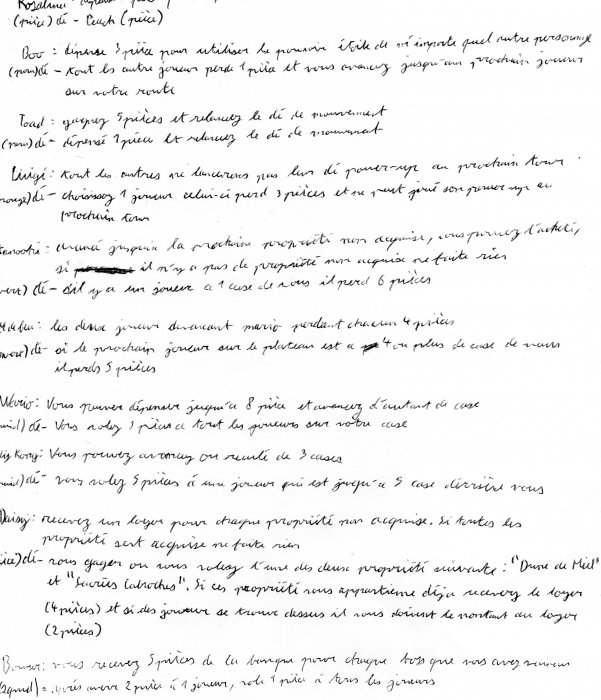 Rosalina
(pièce) dé - Coach (pièce)
Boo : dépense 3 pièce pour utiliser le pouvoir étoile de n'importe quel autre personnage
dé - tout les autre joueur perde 1 pièce et vous avancez jusqu'au prochain joueur
sur votre route
Toad : gagnez 5 pièces et relancez le dé de mouvement
dé - dépensé 1 pièce et relancez le dé de mouvement
Luigi : tout les autres ne lancerons pas leur dé power-up au prochain tour
rouge) dé - choisissez 1 joueur celui-ci perd 3 pièces et ne peut joué son power-up au
prochain tour
jusqu'a la prochaine propriété non acquise, vous pouvez l'acheté,
si il n'y a pas de propriété non acquise ne faite rien
dé - s'il y a un joueur a 1 case de vous il perd 6 pièces
les deux joueur devancant mario perdent chacun 4 pièces
dé - si le prochain joueur sur le plateau est a 4 ou plus de case de vous
il perds 5 pièces
Wario : Vous pouvez dépenser jusqu'a 8 pièce et avancez d'autant de case
dé - Vous volez 3 pièces a tout les joueurs sur votre case
Kong : Vous pouvez avancez ou reculé de 3 cases
dé - vous volez 5 pièces à un joueur qui est jusqu'a 5 case derrière vous
Daisy : recevez un loyer pour chaque propriété non acquise. Si toutes les
propriété sont acquise ne faite rien
dé - vous gagner ou vous volez l'une des deux propriété suivante : "Dune de Miel"
et "Sucrées Cabroches". Si ces propriété vous appartienne déja recevez le loyer
(4 pièces) et si des joueur se trouve dessus il vous doivent le montant du loyer
(2 pièces)
Bowser : vous recevez 5 pièces de la banque pour chaque boss que vous avez vaincu
2 pièce à 1 joueur, vole 1 pièce à tous les joueurs